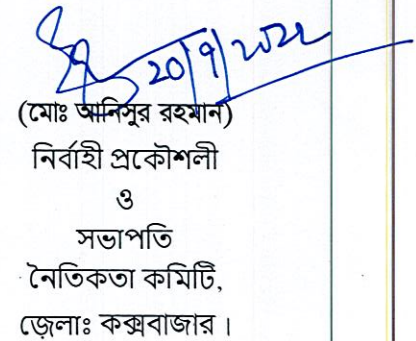 20/9/2022
(মোঃ আনিসুর রহমান)
নির্বাহী প্রকৌশলী
ও
সভাপতি
নৈতিকতা কমিটি,
জেলাঃ কক্সবাজার।